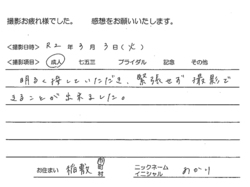 撮影お疲れ様でした。 感想をお願いいたします。
＜撮影日時＞ R2年 3月 3日 (火)
＜撮影項目＞ 成人 七五三 ブライダル 記念 その他
明るく接していただき、緊張せず撮影で
きることが出来ました。
お住まい 稲敷 市町村 ニックネーム イニシャル あかり